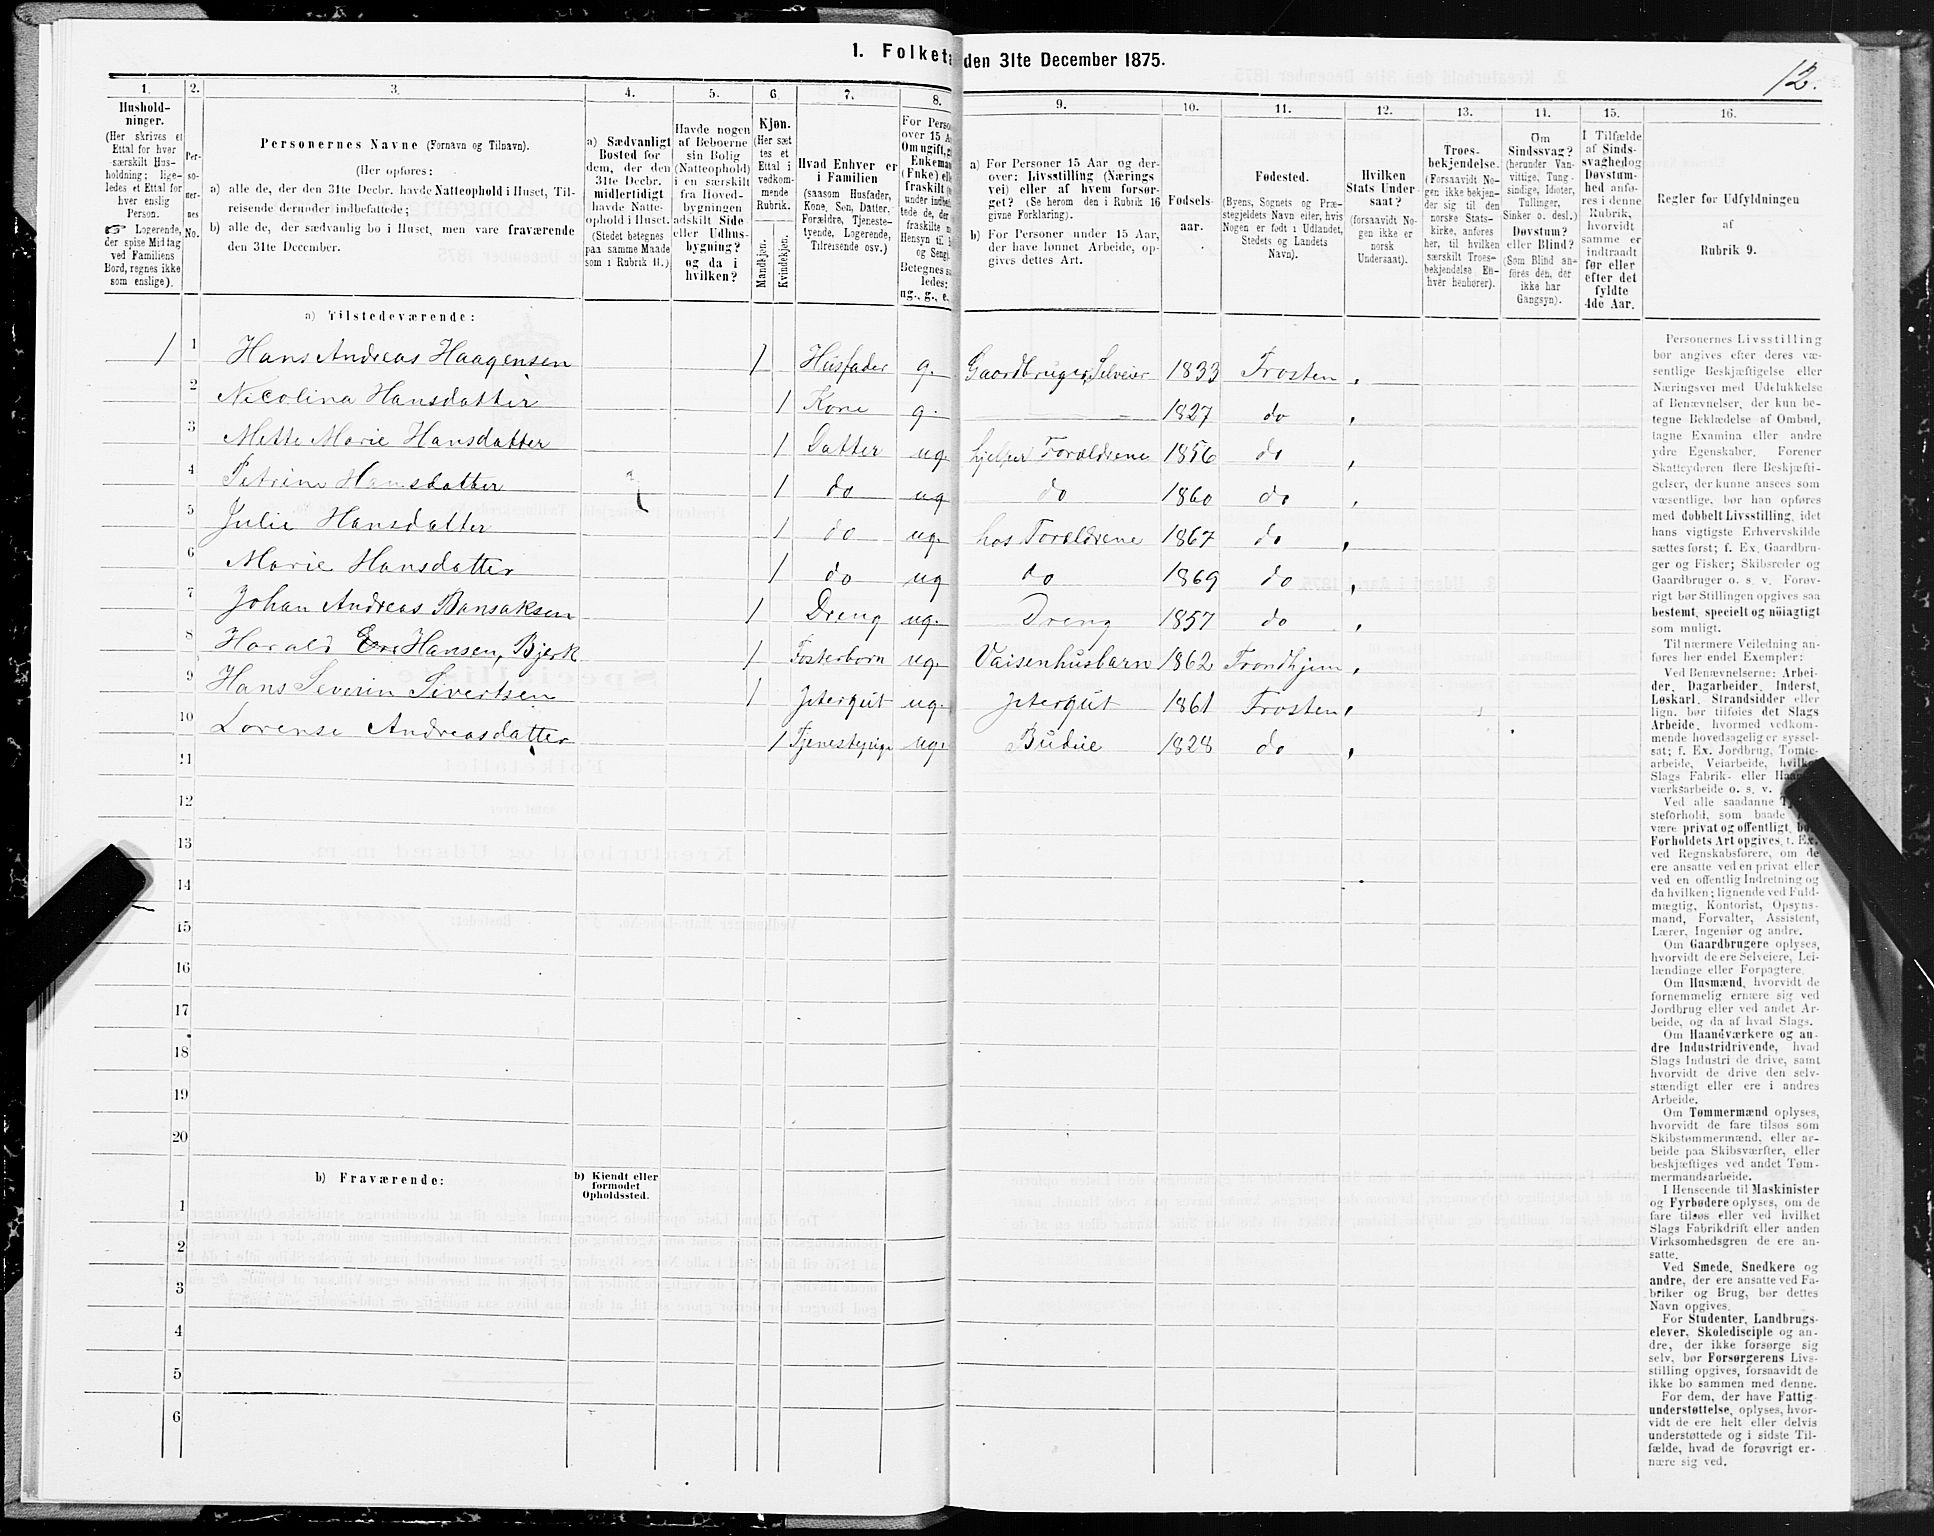 1. Folketa den 31te December 1875.
12.
1. 2. 3. 4. 5. 6. 7. 8. 9. 10. 11. 12. 13. 14. 15. 16.
Hushold-
ninger.
(Her skrives et
Ettal for hver
særskilt Hus-
holdning; lige-
ledes et Ettal for
hver enslig
Person.
☞ Logerende,
der spise Middag
ved Familiens
Bord, regnes ikke
som enslige).
Per-
so-
ner-
nes
No.
Personernes Navne (Fornavn og Tilnavn).
(Her opføres:
a) alle de, der den 31te Decbr. havde Natteophold i Huset, Til-
reisende derunder indbefattede;
b) alle de, der sædvanlig bo i Huset, men vare fraværende
den 31te December.
a) Sædvanligt
Bosted for
dem, der den
31te Decbr.
midlertidigt
havde Natte-
ophold i Huset.
(Stedet betegnes
paa samme Maade
som i Rubrik 11.)
Havde nogen
af Beboerne
sin Bolig
(Natteophold)
i en særskilt
fra Hoved-
bygningen
adskilt Side
eller Udhus-
bygning?
og da i
hvilken?
Kjøn.
(Her sæt
tes et
Ettal i
vedkom-
mende
Rubrik.
Mandkjøn.
Kvindekjøn.
Hvad Enhver er
i Familien
(saasom Husfader,
Kone, Søn, Datter,
Forældre, Tjeneste-
tyende, Logerende,
Tilreisende osv.)
For Perso
over 15 A
Om ugift, g
Enkemau
(Enke) elle
fraskilt (
under indbe
tede de, der
fraskilte m
Hensyn til B
og Seng).
Betegnes sa
ledes:
ug., g., e.,
a) For Personer 15 Aar og der-
over: Livsstilling (Nærings
vei) eller af hvem forsør-
get? (Se herom den i Rubrik 16
givne Forklaring).
b) For Personer under 15 Aar,
der have lønnet Arbeide, op-
gives dettes Art.
Fødsels-
aar.
Fødested.
(Byens, Sognets og Præ-
stegjeldets Navn eller, hvis
Nogen er født i Udlandet,
Stedets og Landets
Navn).
Hvilken
Stats Under-
saat?
(forsaavidt No-
gen ikke er
norsk
Undersaat).
Troes-
bekjendelse.
(Forsaavidt No-
gen ikke bekjen-
der sig til den
norske Stats-
kirke, anføres
her, til hvilken
særskilt Troes-
bekjendelse En-
hver henhører).
Om
Sindssvag?
(herunder Van-
vittige, Tung-
sindige, Idioter,
Tullinger,
Sinker o. desl.)
Døvstum?
eller Blind?
(Som Blind an-
føres den, der
ikke har
Gangsyn).
I Tilfælde
af Sinds-
svaghed og
Døvstum-
hed anfø-
res i denne
Rubrik,
hvorvidt
samme er
indtraadt
før eller
efter det
fyldte
4de Aar.
Regler for Udfyldningen
af
Rubrik 9.
a) Tilstedeværende:
1 1 Hans Andreas Haagensen 1 Husfader g. Gaardbruger, Selveier 1833 Frosten
2 Nicolina Hansdatter 1 Kone g. 1827 do
3 Mette Marie Hansdatter 1 Datter ug. hjelper Forældrene 1856 do
4 Petrine Hansdatter 1 do ug do 1860 do
5 Julie Hansdatter 1 do ug. hos Forældrene 1867 do
6 Marie Hansdatter 1 do ug do 1869 do
7 Johan Andreas Bansaksen 1 Dreng ug. Dreng 1857 do
8 Harald Hansen, Bjerk 1 Fosterbørn ug. Vaisenhusbarn 1862 Trondhjem
9 Hans Severin Sivertsen 1 Jetergut ug. Jetergut 1861 Frosten
10 Lorense Andreasdatter 1 Tjenestepige ug. Budeie 1828 do
11
12
13
14
15
16
17
18
19
20
b) Fraværende:
b) Kjendt eller
formodet
Opholdssted.
1
2
3
4
5
6
Personernes Livsstilling
bør angives efter deres væ-
sentlige Beskjæftigelse eller
Næringsvei med Udelukkelse
af Benævnelser, der kun be-
tegne Beklædelse af Ombud,
tagne Examina eller andre
ydre Egenskaber. Forener
Skatteyderen flere Beskjæfti-
gelser, der kunne ansees som
væsentlige, bør han opføres
med dobbelt Livsstilling, idet
hans vigtigste Erhvervskilde
sættes først; f. Ex. Gaardbru-
ger og Fisker; Skibsreder og
Gaardbruger o. s. v. Forøv-
rigt bør Stillingen opgives saa
bestemt, specielt og nøiagtigt
som muligt.
Til nærmere Veiledning an-
føres her endel Exempler:
Ved Benævnelserne: Arbei-
der, Dagarbeider, Inderst,
Løskarl, Strandsidder eller
lign. bør tilføies det Slags
Arbeide, hvormed vedkom-
mende hovedsagelig er syssel-
sat; f. Ex. Jordbrug, Tomte-
arbeide, Veiarbeide, hvilket
Slags Fabrik- eller Haand-
værksarbeide o. s. v.
Ved alle saadanne Tje-
steforhold, som baade
være privat og offentligt, bør
Forholdets Art opgives, f. Ex.
ved Regnskabsførere, om de
ere ansatte ved en privat eller
ved en offentlig Indretning og
da hvilken; lignende ved Fuld-
mægtig, Kontorist, Opsyns-
mand, Forvalter, Assistent,
Lærer, Ingeniør og andre.
Om Gaardbrugere oplyses,
hvorvidt de ere Selveiere, Lei-
lændinge eller Forpagtere.
Om Husmænd, hvorvidt de
fornemmelig ernære sig ved
Jordbrug eller ved andet Ar-
beide, og da af hvad Slags.
Om Haandværkere og an-
dre Industridrivende, hvad
Slags Industri de drive, samt
hvorvidt de drive den selv-
stændigt eller ere i andres
Arbeide.
Om Tømmermænd oplyses,
hvorvidt de fare tilsøs som
Skibstømmermænd, eller ar-
beide paa Skibsværfter, eller
beskjæftiges ved andet Tøm-
mermandsarbeide.
I Henseende til Maskinister
og Fyrbødere oplyses, om de
fare tilsøs eller ved hvilket
Slags Fabrikdrift eller anden
Virksomhedsgren de ere an-
satte.
Ved Smede, Snedkere og
andre, der ere ansatte ved Fa-
briker og Brug, bør dettes
Navn opgives.
For Studenter, Landbrugs-
elever, Skoledisciple og an-
dre, der ikke forsørge sig
selv, bør Forsørgerens Livs-
stilling opgives, forsaavidt de
ikke bo sammen med denne.
For dem, der have Fattig-
understøttelse, oplyses, hvor-
vidt de ere helt eller delvis
understøttede og i sidste Til-
fælde, hvad de forøvrigt er-
nære sig ved.